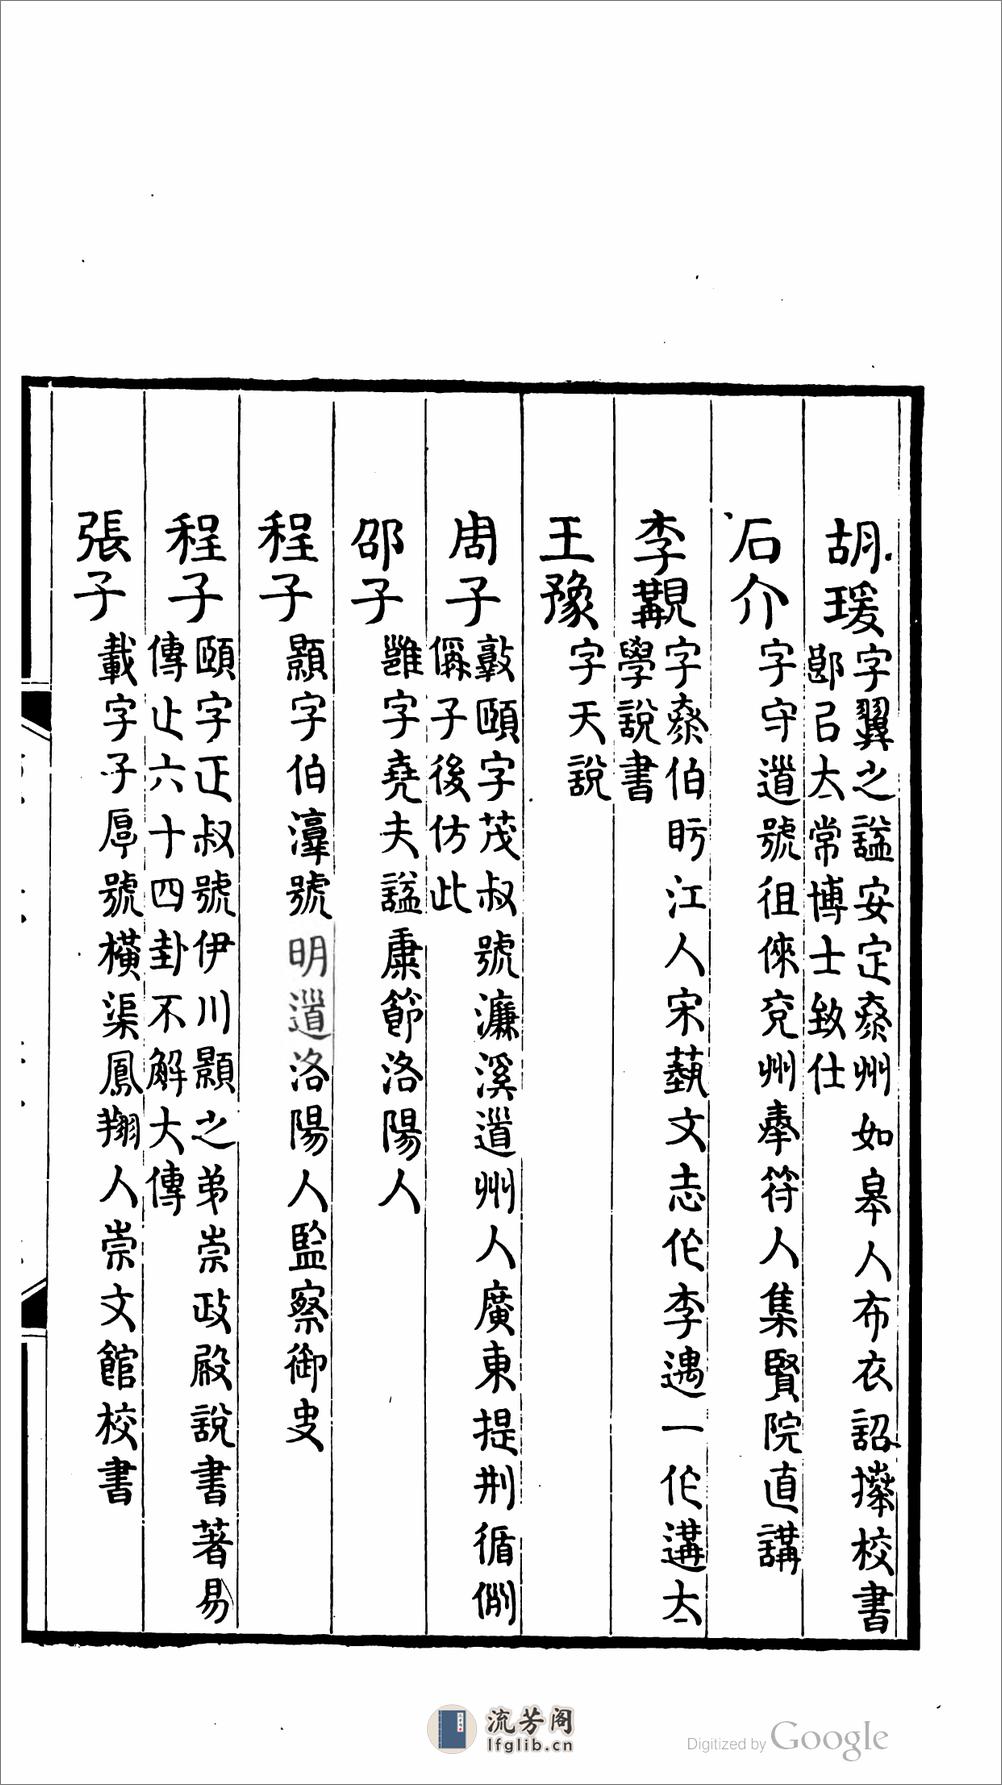 胡瑗字翼之諡安定泰州如皋人布衣詔擢校書
郎召太常博士致仕
石介字守道號徂徠兗州奉符人集賢院直講
李覯字泰伯盱江人宋藝文志作李遇一作遘太
學說書
王豫字天說
周子敦頤字茂叔號濂溪道州人廣東提刑循例
偁子後仿此
邵子雝字堯夫諡康節洛陽人
程子顥字伯淳號明道洛陽人監察御史
程子頤字正叔號伊川顥之弟崇政殿說書著易
傳止六十四卦不解大傳
張子載字子厚號橫渠鳳翔人崇文館校書
流芳阁
lfglib.cn
Digitized by Google